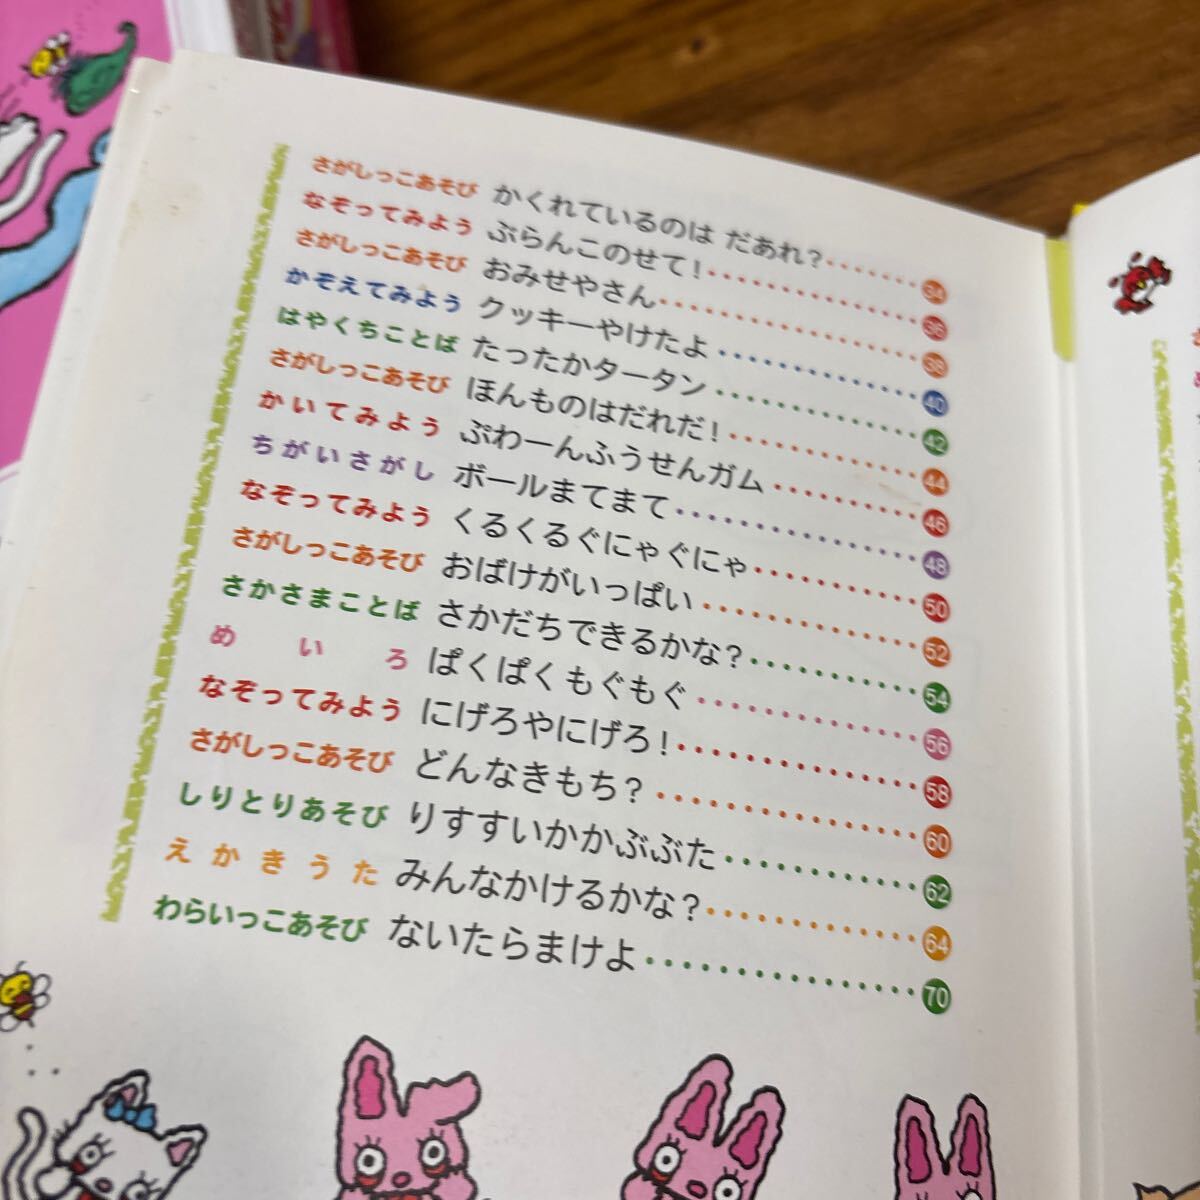 さがしっこあそび かくれているのは だあれ?・・・・・・・34
なぞってみよう ぶらんこのせて!・・・・・・・・・・・・・36
さがしっこあそび おみせやさん・・・・・・・・・・・・・・・38
かぞえてみよう クッキーやけたよ・・・・・・・・・・・・40
はやくちことば たったかタータン・・・・・・・・・・・・42
さがしっこあそび ほんものはだれだ!・・・・・・・・・・・44
かいてみよう ぷわーんふうせんガム・・・・・・・・・46
ちがいさがし ボールまてまて・・・・・・・・・・・・・・48
なぞってみよう くるくるぐにゃぐにゃ・・・・・・・・・・50
さがしっこあそび おばけがいっぱい・・・・・・・・・・・・・52
さかさまことば さかだちできるかな?・・・・・・・・・・54
めいろ ぱくぱくもぐもぐ・・・・・・・・・・・・・56
なぞってみよう にげろやにげろ!・・・・・・・・・・・・・58
さがしっこあそび どんなきもち?・・・・・・・・・・・・・・60
しりとりあそび りすすいかかぶぶた・・・・・・・・・・・62
えかきうた みんなかけるかな?・・・・・・・・・・・・64
わらいっこあそび ないたらまけよ・・・・・・・・・・・・・・・70